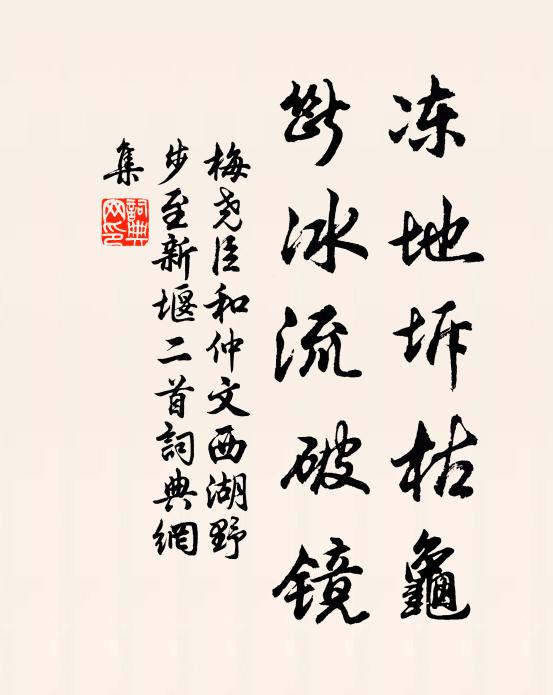 冻地坼枯龜
断冰流破鏡
梅尧臣和仲文西湖野
步至新堰二首詞典網
集
詞典
网印